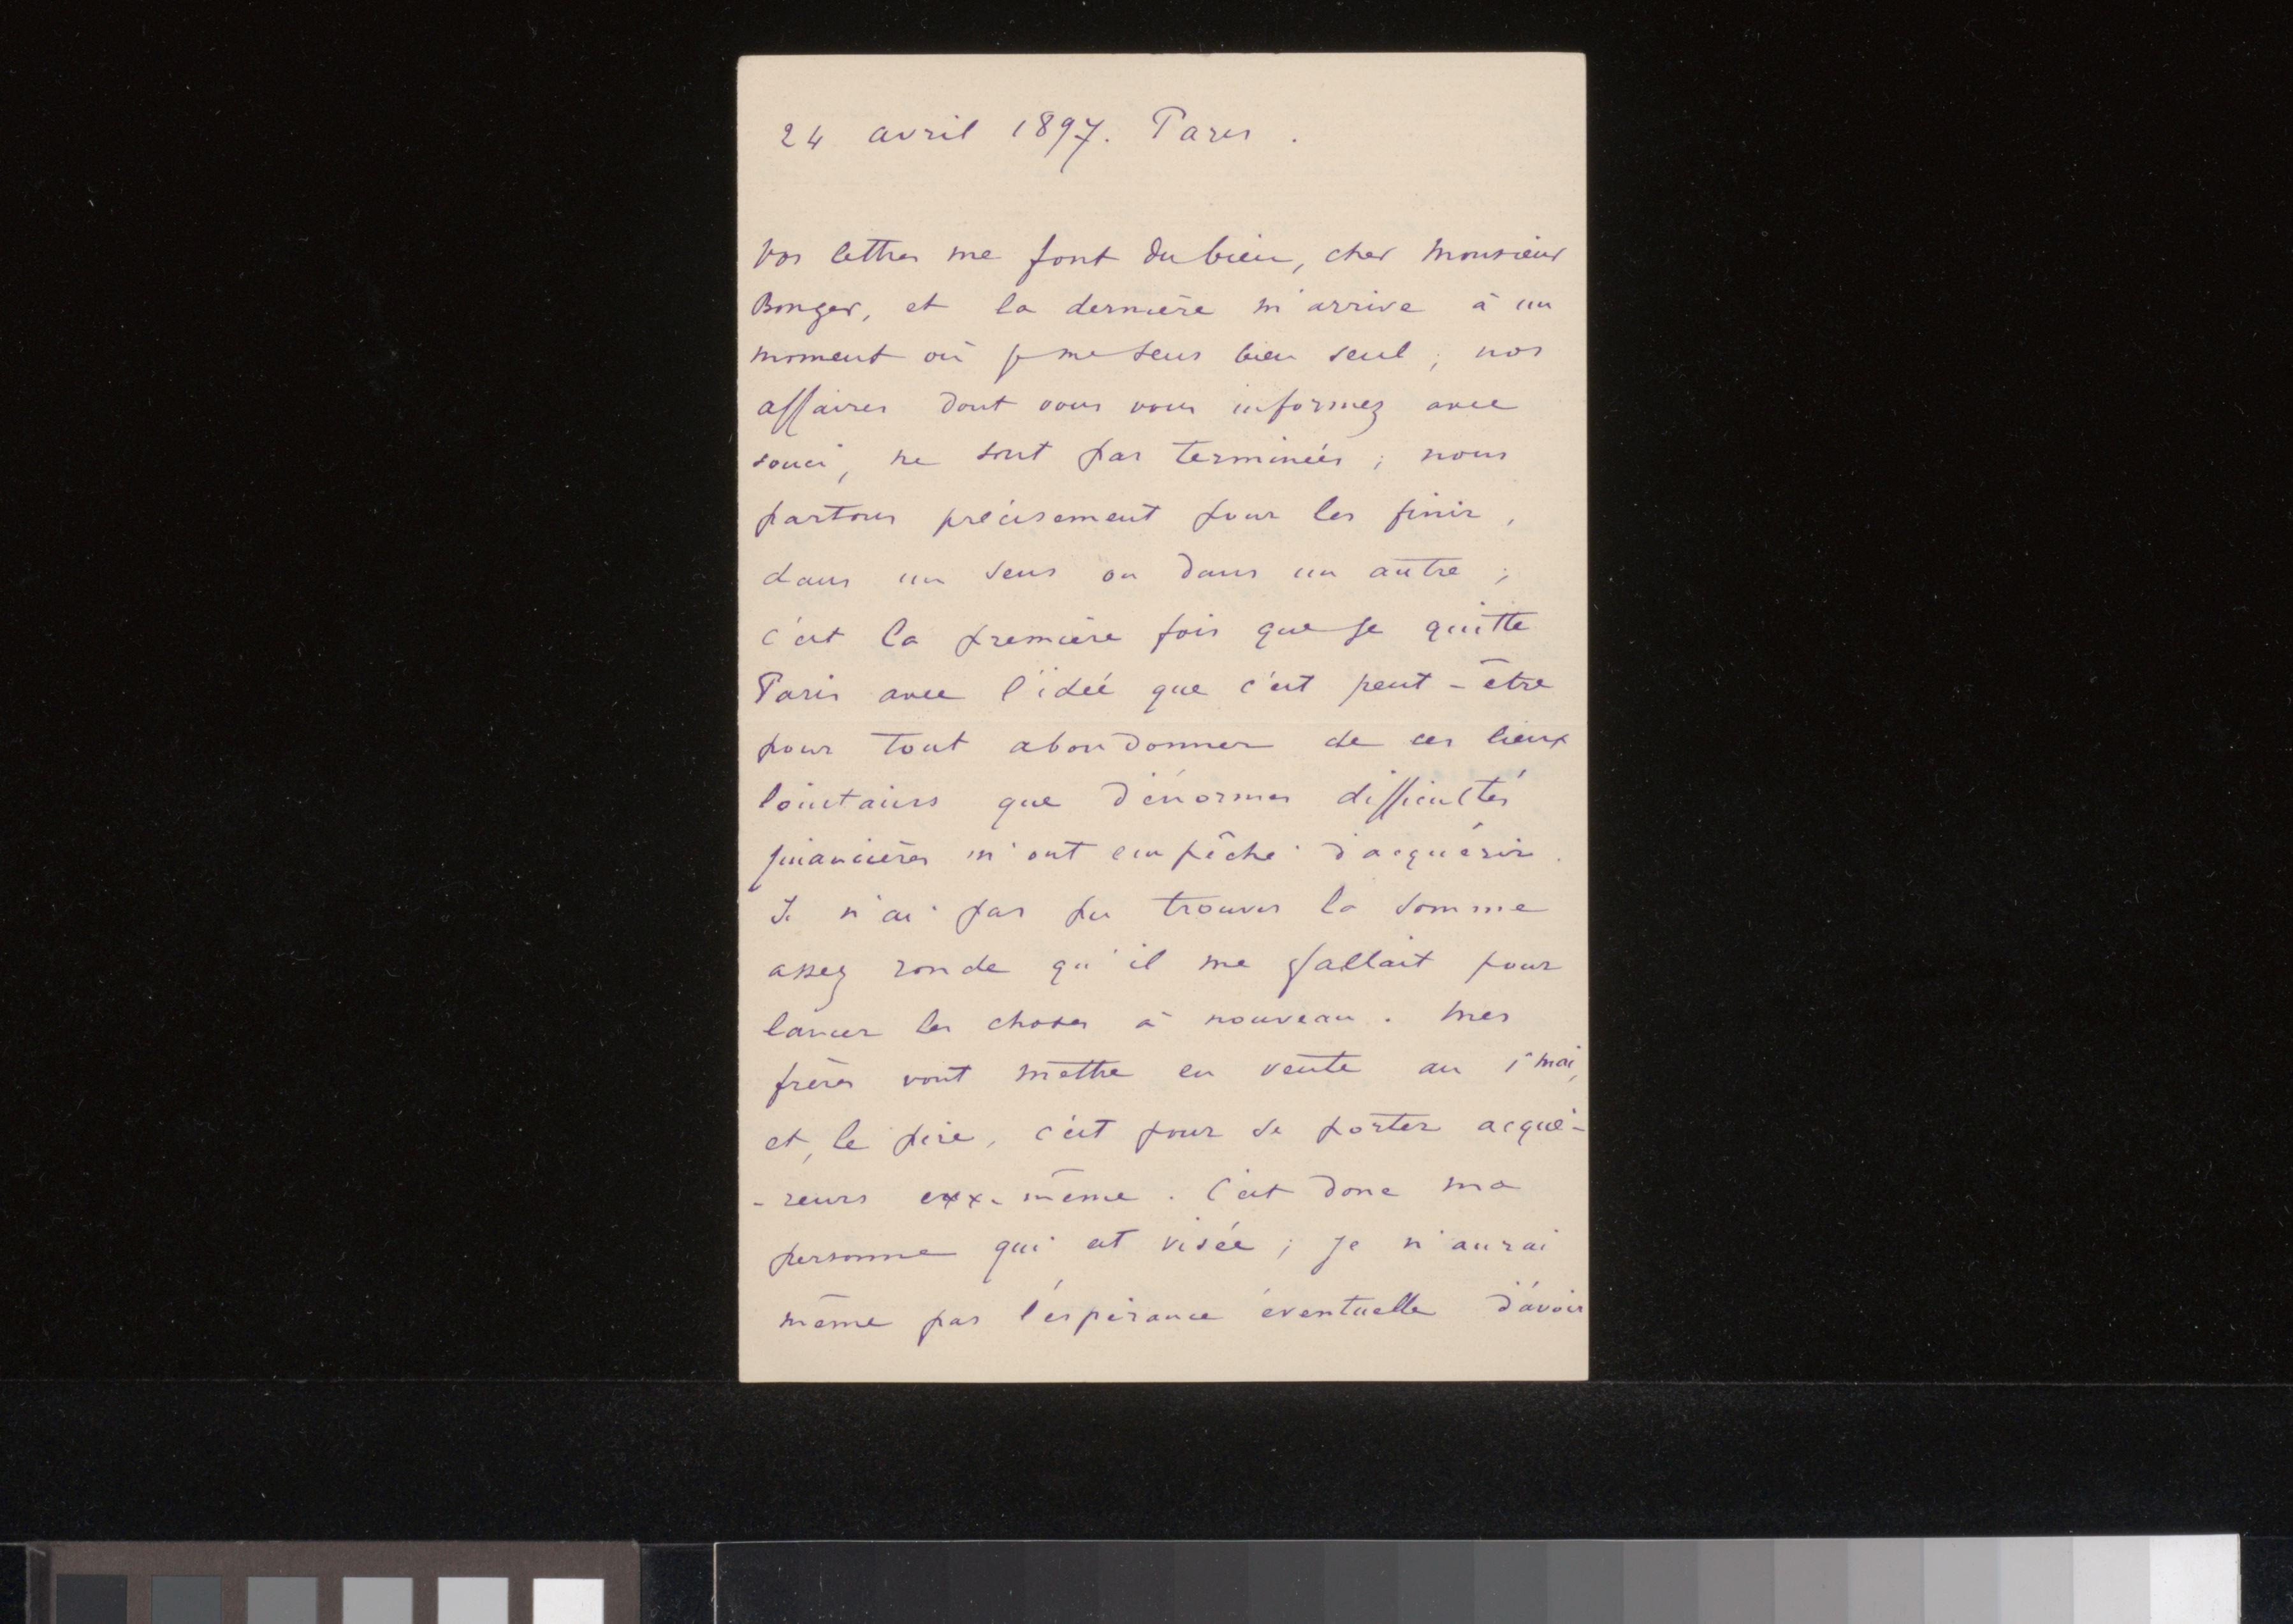 24 avril 1897. Paris.
Vos lettres me font du bien, cher Monsieur
Bonger, et la dernière m'arrive à un
moment où je me sens bien seul ; nos
affaires dont vous vous informez avec
souci, ne sont pas terminées ; nous
partons précisement pour les finir,
dans un sens ou dans un autre ;
c'est la première fois que je quitte
Paris avec l'idée que c'est peut-être
pour tout abandonner de ces lieux
lointains que d'énormes difficultés
financières m'ont empêché d'acquérir.
Je n'ai pas pu trouver la somme
assez ronde qu'il me fallait pour
lancer les choses à nouveau. Mes
frères vont mettre en vente au 1er mai,
et, le pire, c'est pour se porter acqué-
-reurs eux-même. C'est donc ma
personne qui est visée ; je n'aurai
même pas l'espérance éventuelle d'avoir